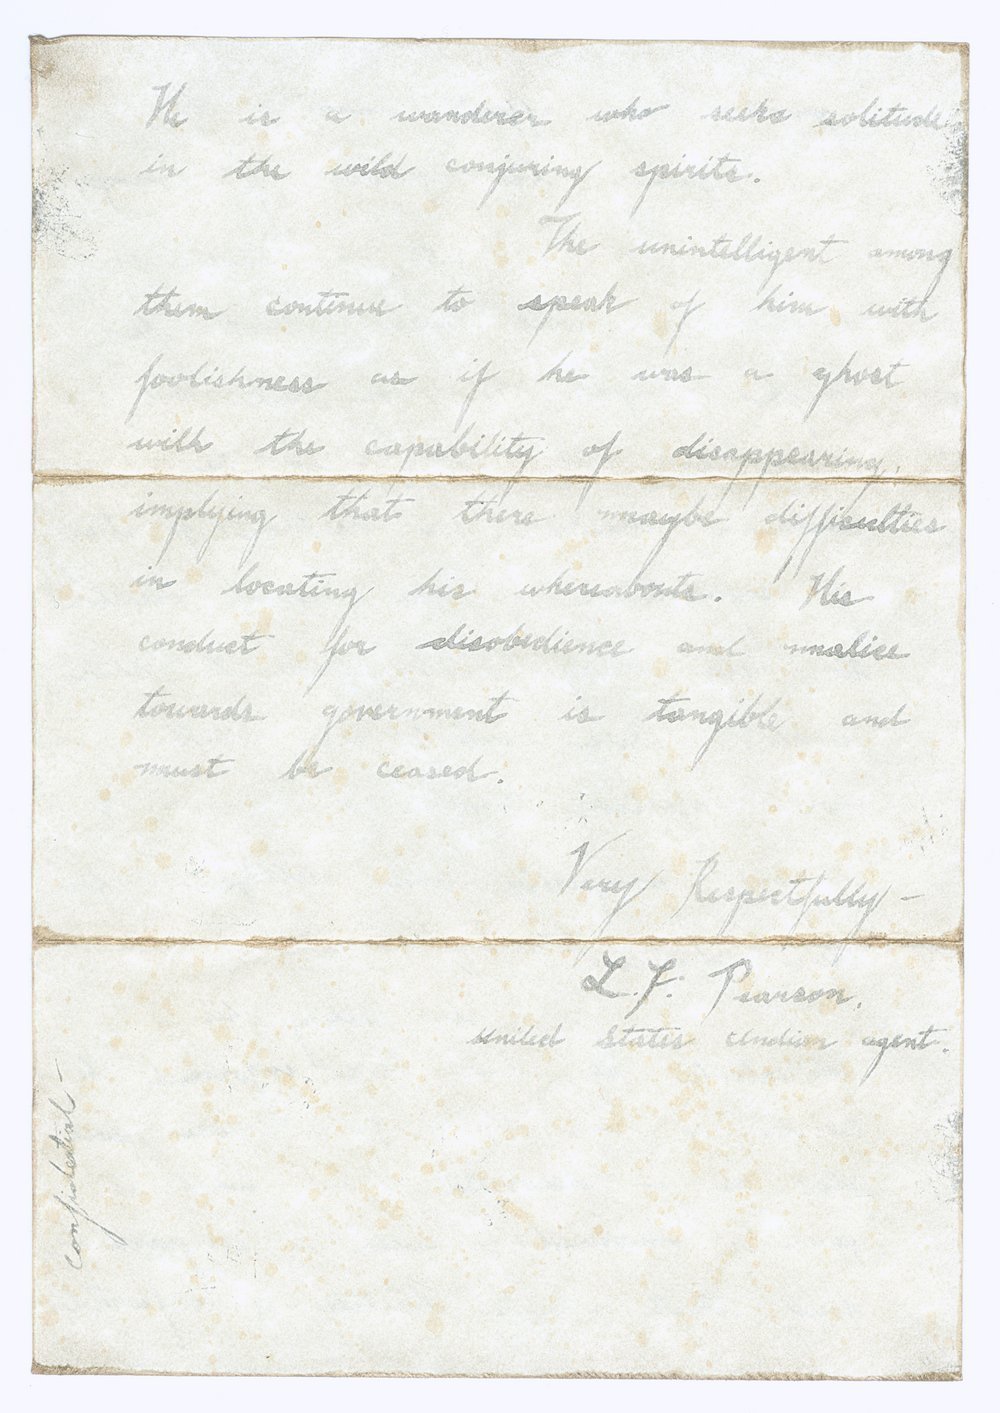 He is a wanderer who seeks solitude
in the wild conjuring spirits.
The unintelligent among
them continue to speak of him with
foolishness as if he was a ghost
with the capability of disappearing,
implying that there maybe difficulties
in locating his whereabouts. His
conduct for disobedience and malice
towards government is tangible and
must be ceased.
Very Respectfully –
L. F. Pearson,
united states indian agent.
confidential –